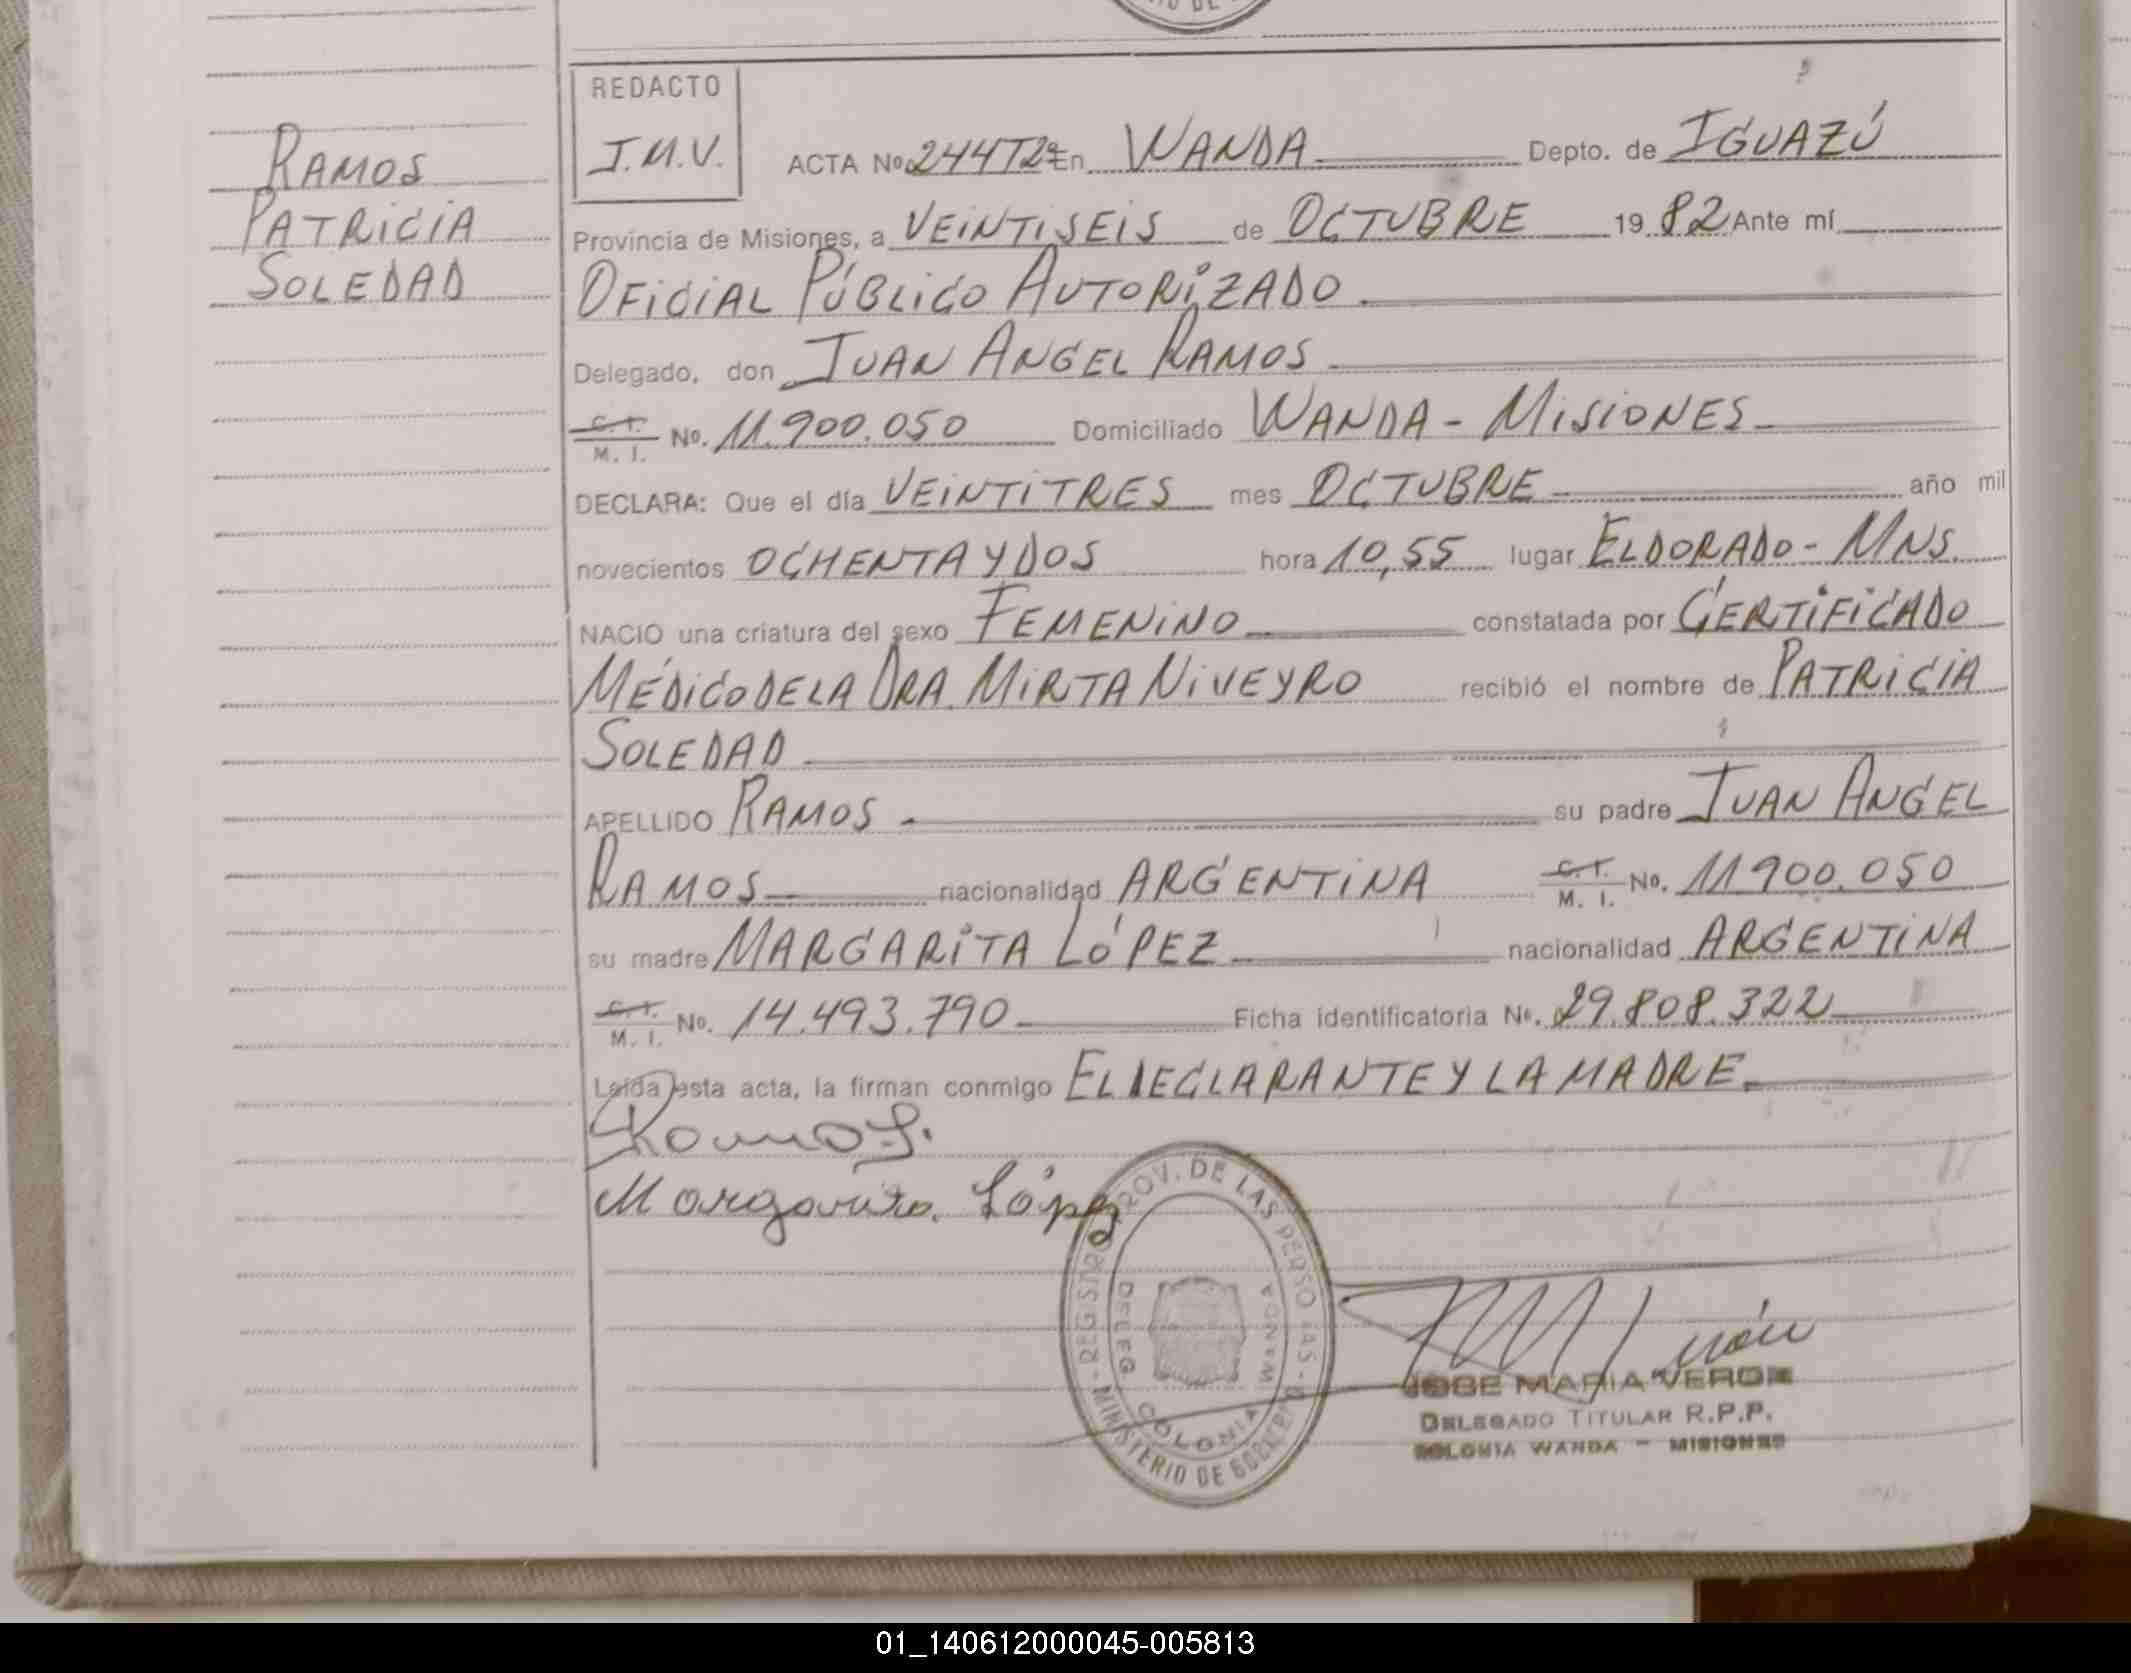 RIO DE
REDACTO
J.M.V.
RAMOS
PATRICIA
SOLEDAD
ACTA No. 244T2º En WANDA Depto. de IGUAZÚ
Provincia de Misiones, a VEINTISEIS de OCTUBRE 1982 Ante mí
OFICIAL PÚBLICO AUTORIZADO
Delegado, don JUAN ANGEL RAMOS
C. I. M. I. No. 11.900.050 Domiciliado WANDA - MISIONES
DECLARA: Que el día VEINTITRES mes OCTUBRE año mil
novecientos OCHENTA Y DOS hora 10,55 lugar ELDORADO - MNS.
NACIO una criatura del sexo FEMENINO constatada por CERTIFICADO
MÉDICO DE LA DRA. MIRTA NIVEYRO recibió el nombre de PATRICIA
SOLEDAD
APELLIDO RAMOS su padre JUAN ANGEL
RAMOS nacionalidad ARGENTINA C. I. M. I. No. 11900.050
su madre MARGARITA LÓPEZ nacionalidad ARGENTINA
C. I. M. I. No. 14.493.790 Ficha identificatoria No. 29.808.322
Leída esta acta, la firman conmigo EL DECLARANTE Y LA MADRE.
Ramos J.
Margarita López
REGISTRO PROV. DE LAS PERSONAS - MINISTERIO DE GOBIERNO
DELEG. COLONIA WANDA
JOSE MARIA VERON
DELEGADO TITULAR R.P.P.
COLONIA WANDA - MISIONES
01_140612000045-005813